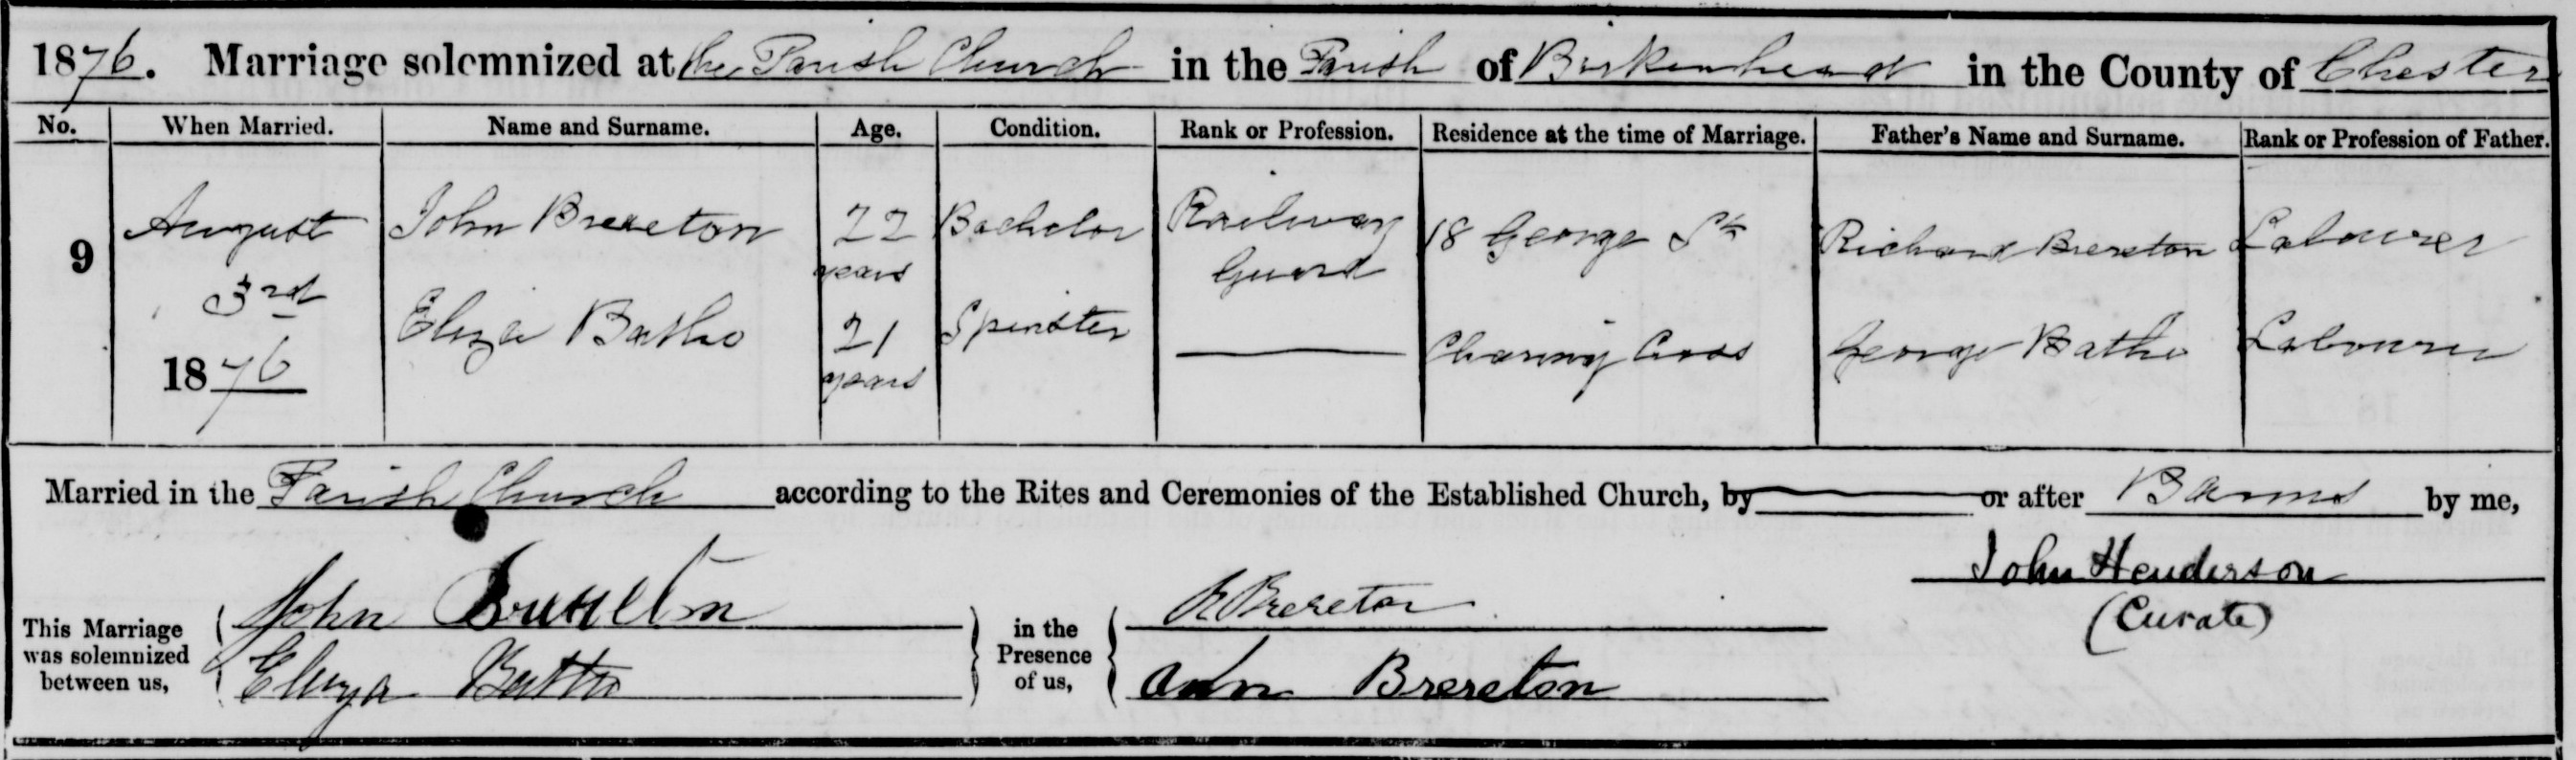 1876. Marriage solemnized at the Parish Church in the Parish of Birkenhead in the County of Chester
No. When Married. Name and Surname. Age. Condition. Rank or Profession. Residence at the time of Marriage. Father's Name and Surname. Rank or Profession of Father.
9 August 3rd 1876 John Brereton 22 years Bachelor Railway Guard 18 George St Richard Brereton Labourer
Eliza Batho 21 years Spinster Charing Cross George Batho Labourer
Married in the Parish Church according to the Rites and Ceremonies of the Established Church, by or after Banns by me,
John Henderson
(Curate)
This Marriage was solemnized between us,
John Brereton
Eliza Batho
in the Presence of us,
R Brereton
Ann Brereton